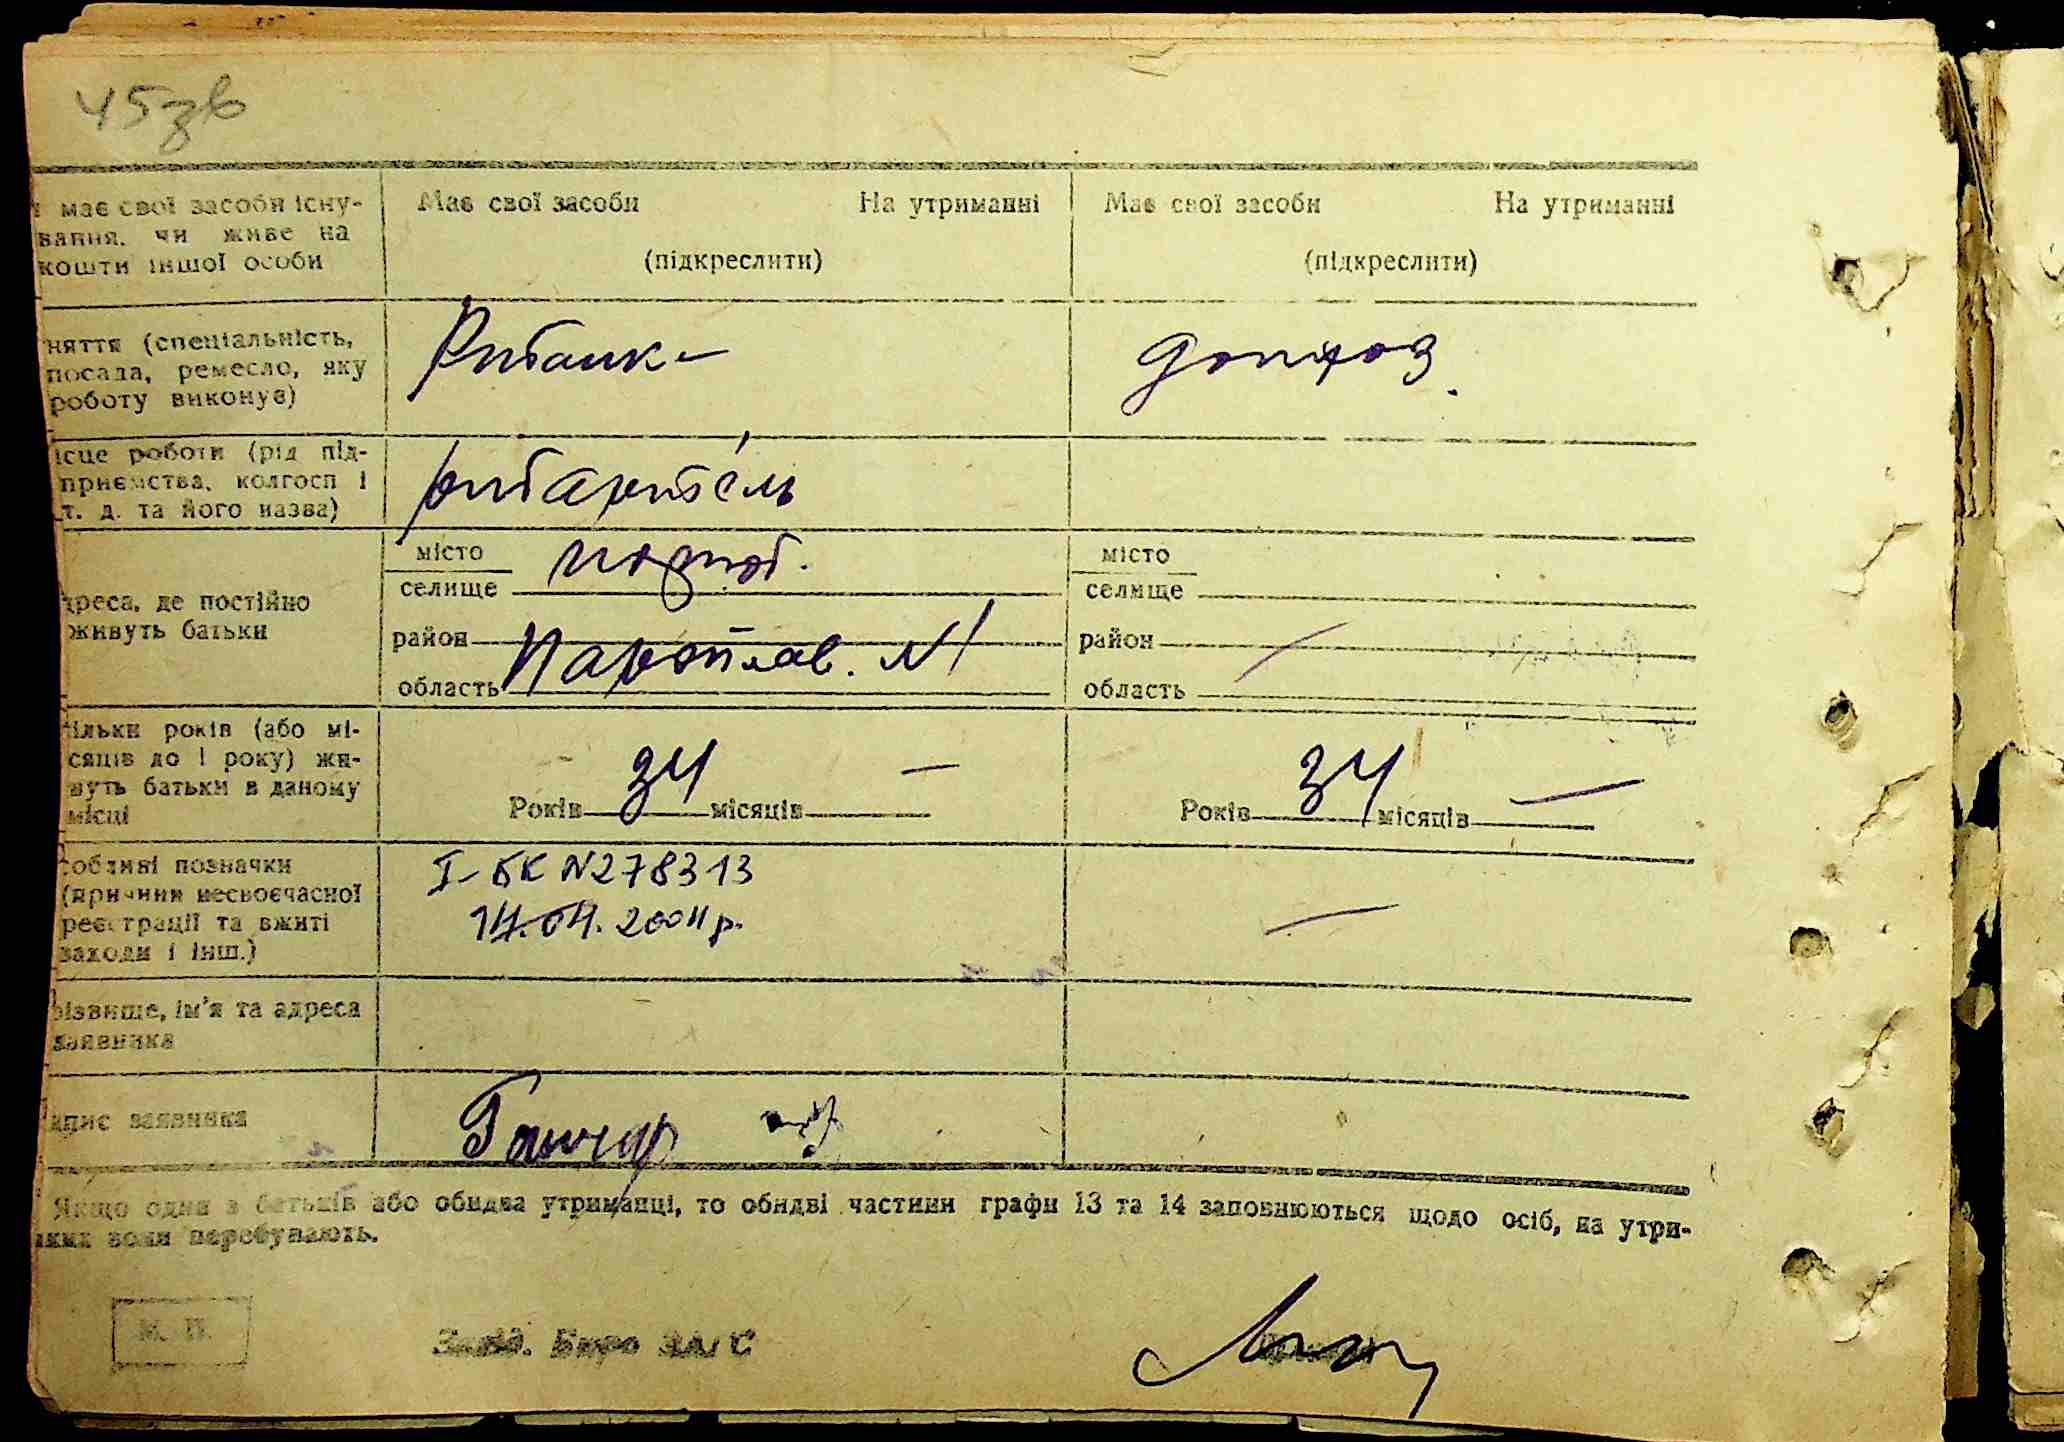 45зв
має свої засоби існу-
вання, чи живе на
кошти іншої особи
Має свої засоби На утриманні
(підкреслити)
Має свої засоби На утриманні
(підкреслити)
няття (спеціальність,
посада, ремесло, яку
роботу виконує)
Рибалка
домгоз.
ісце роботи (рід під-
приємства, колгосп і
т. д. та його назва)
рибартель
дреса, де постійно
живуть батьки
місто
селище
район
область Паротплав. №1
місто
селище
район —
область
ільки років (або мі-
сяців до 1 року) жи-
вуть батьки в даному
місці
Років 34 місяців —
Років 34 місяців —
собливі позначки
(причини несвоєчасної
реєстрації та вжиті
заходи і інш.)
I-БК N278313
14.04.2004р.
—
різвище, ім'я та адреса
заявника
дпис заявника
Гончар
Якщо один з батьків або обидва утриманці, то обидві частини графи 13 та 14 заповнюються щодо осіб, на утри-
яких вони перебувають.
М. П.
Завід. Бюро ЗАГС